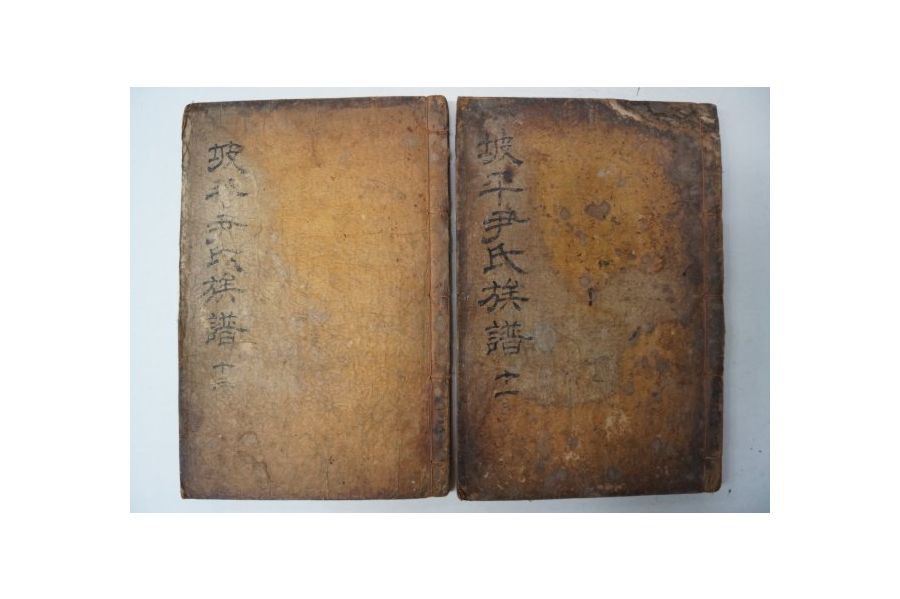 坡平尹氏族譜 十三
坡平尹氏族譜 十一